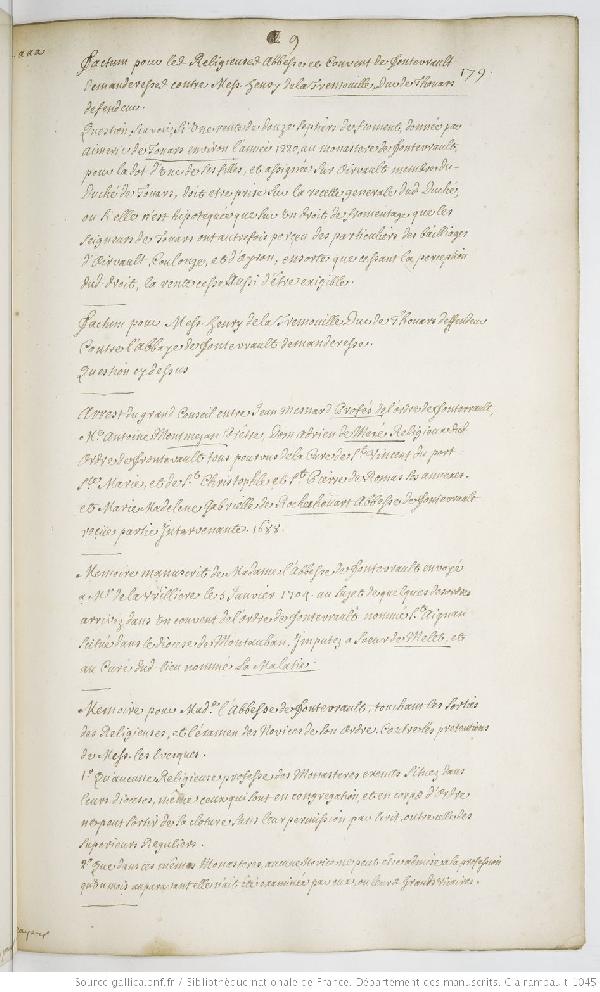 9
179.
Factum pour les Religieuses Abbesse et Convent de Fontevrault
demanderesses contre Mess. Henry de la Tremouille Duc de Thouars
defendeur.
Question scavoir si une rente de douze septiers de froment, donnée par
Aimery de Touars environ l'année 1220, au monastere de Fontevrault
pour la dot d'une de ses filles, et assignée sur Oirvault membre du
Duché de Touars, doit etre prise sur la recette generale dud. Duché,
ou si elle n'est hipotequée que sur un droit de fromentage que les
seigneurs de Touars ont autrefois perçeu des particuliers des bailliages
d'Oirvault, Coulonge, et d'Ayron, ensorte que cessant la perception
dud. droit, la rente cesse aussi d'être exigible.
Factum pour Mess. Henry de la Tremouille Duc de Thouars deffendeur
Contre l'Abbaye de Fontevrault demanderesse.
Question cy dessus
Arrest du grand Conseil entre Jean Mesnard Profés de l'ordre de Fontevrault,
Me. Antoine Montmejan Prêtre, Dom Adrien de Meré Religieux dud.
Ordre de Fontevrault tous pourvus de la Cure de St. Vincent du port
Ste. Marie, et de St. Christophle, et St. Pierre de Romas les annexes.
et Marie Madelene Gabrielle de Rochechouart Abbesse de Fontevrault
reçüe partie Intervenante. 1688.
Memoire manuscrit de Madame l'Abbesse de Fontevrault envoyé
a Mr. de la Vrilliere le 5 Janvier 1709. au sujet de quelques desordres
arrivez dans un couvent de l'ordre de Fontevrault nommé St. Aignan
scitué dans le diocese de Montauban, Imputez a Soeur de Melet, et
au Curé dud. lieu nommé La Malatie.
Memoire pour Made. l'Abbesse de Fontevrault, touchant les sorties
des Religieuses, et l'éxamen des Novices de son Ordre Contre les pretentions
de Mess. les Evesques.
1º. Qu'aucune Religieuse professe des Monasteres exemts situez dans
leurs dioceses, même ceux qui sont en congregation, et en corps d'Ordre
ne peut sortir de la cloture sans leur permission par écrit, outre celle des
Superieurs Reguliers.
2º. Que dans ces mêmes Monasteres, aucune Novice ne peut être admise a la profession
qu'un mois auparavant elle n'ait été examinée par eux, ou leurs Grands Vicaires.
Source gallica.bnf.fr / Bibliothèque nationale de France. Département des manuscrits. Clairambault 1045